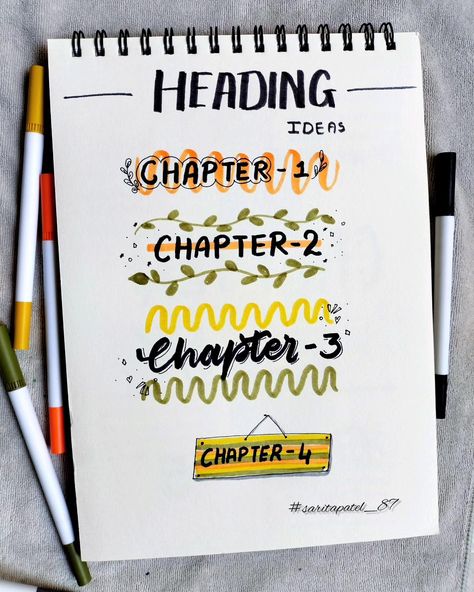 HEADING
IDEAS
CHAPTER - 1
CHAPTER-2
Chapter-3
CHAPTER-4
#saritapatel_87